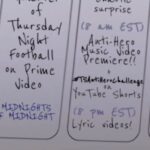 of
Thursday
Night
Football
on Prime
Video
MIDNIGHTS
OF MIDNIGHT
surprise
(8 AM EST)
Anti-Hero
Music Video
Premiere!!
#TSAntiHeroChallenge
on
YouTube Shorts
(8 PM EST)
Lyric Videos!